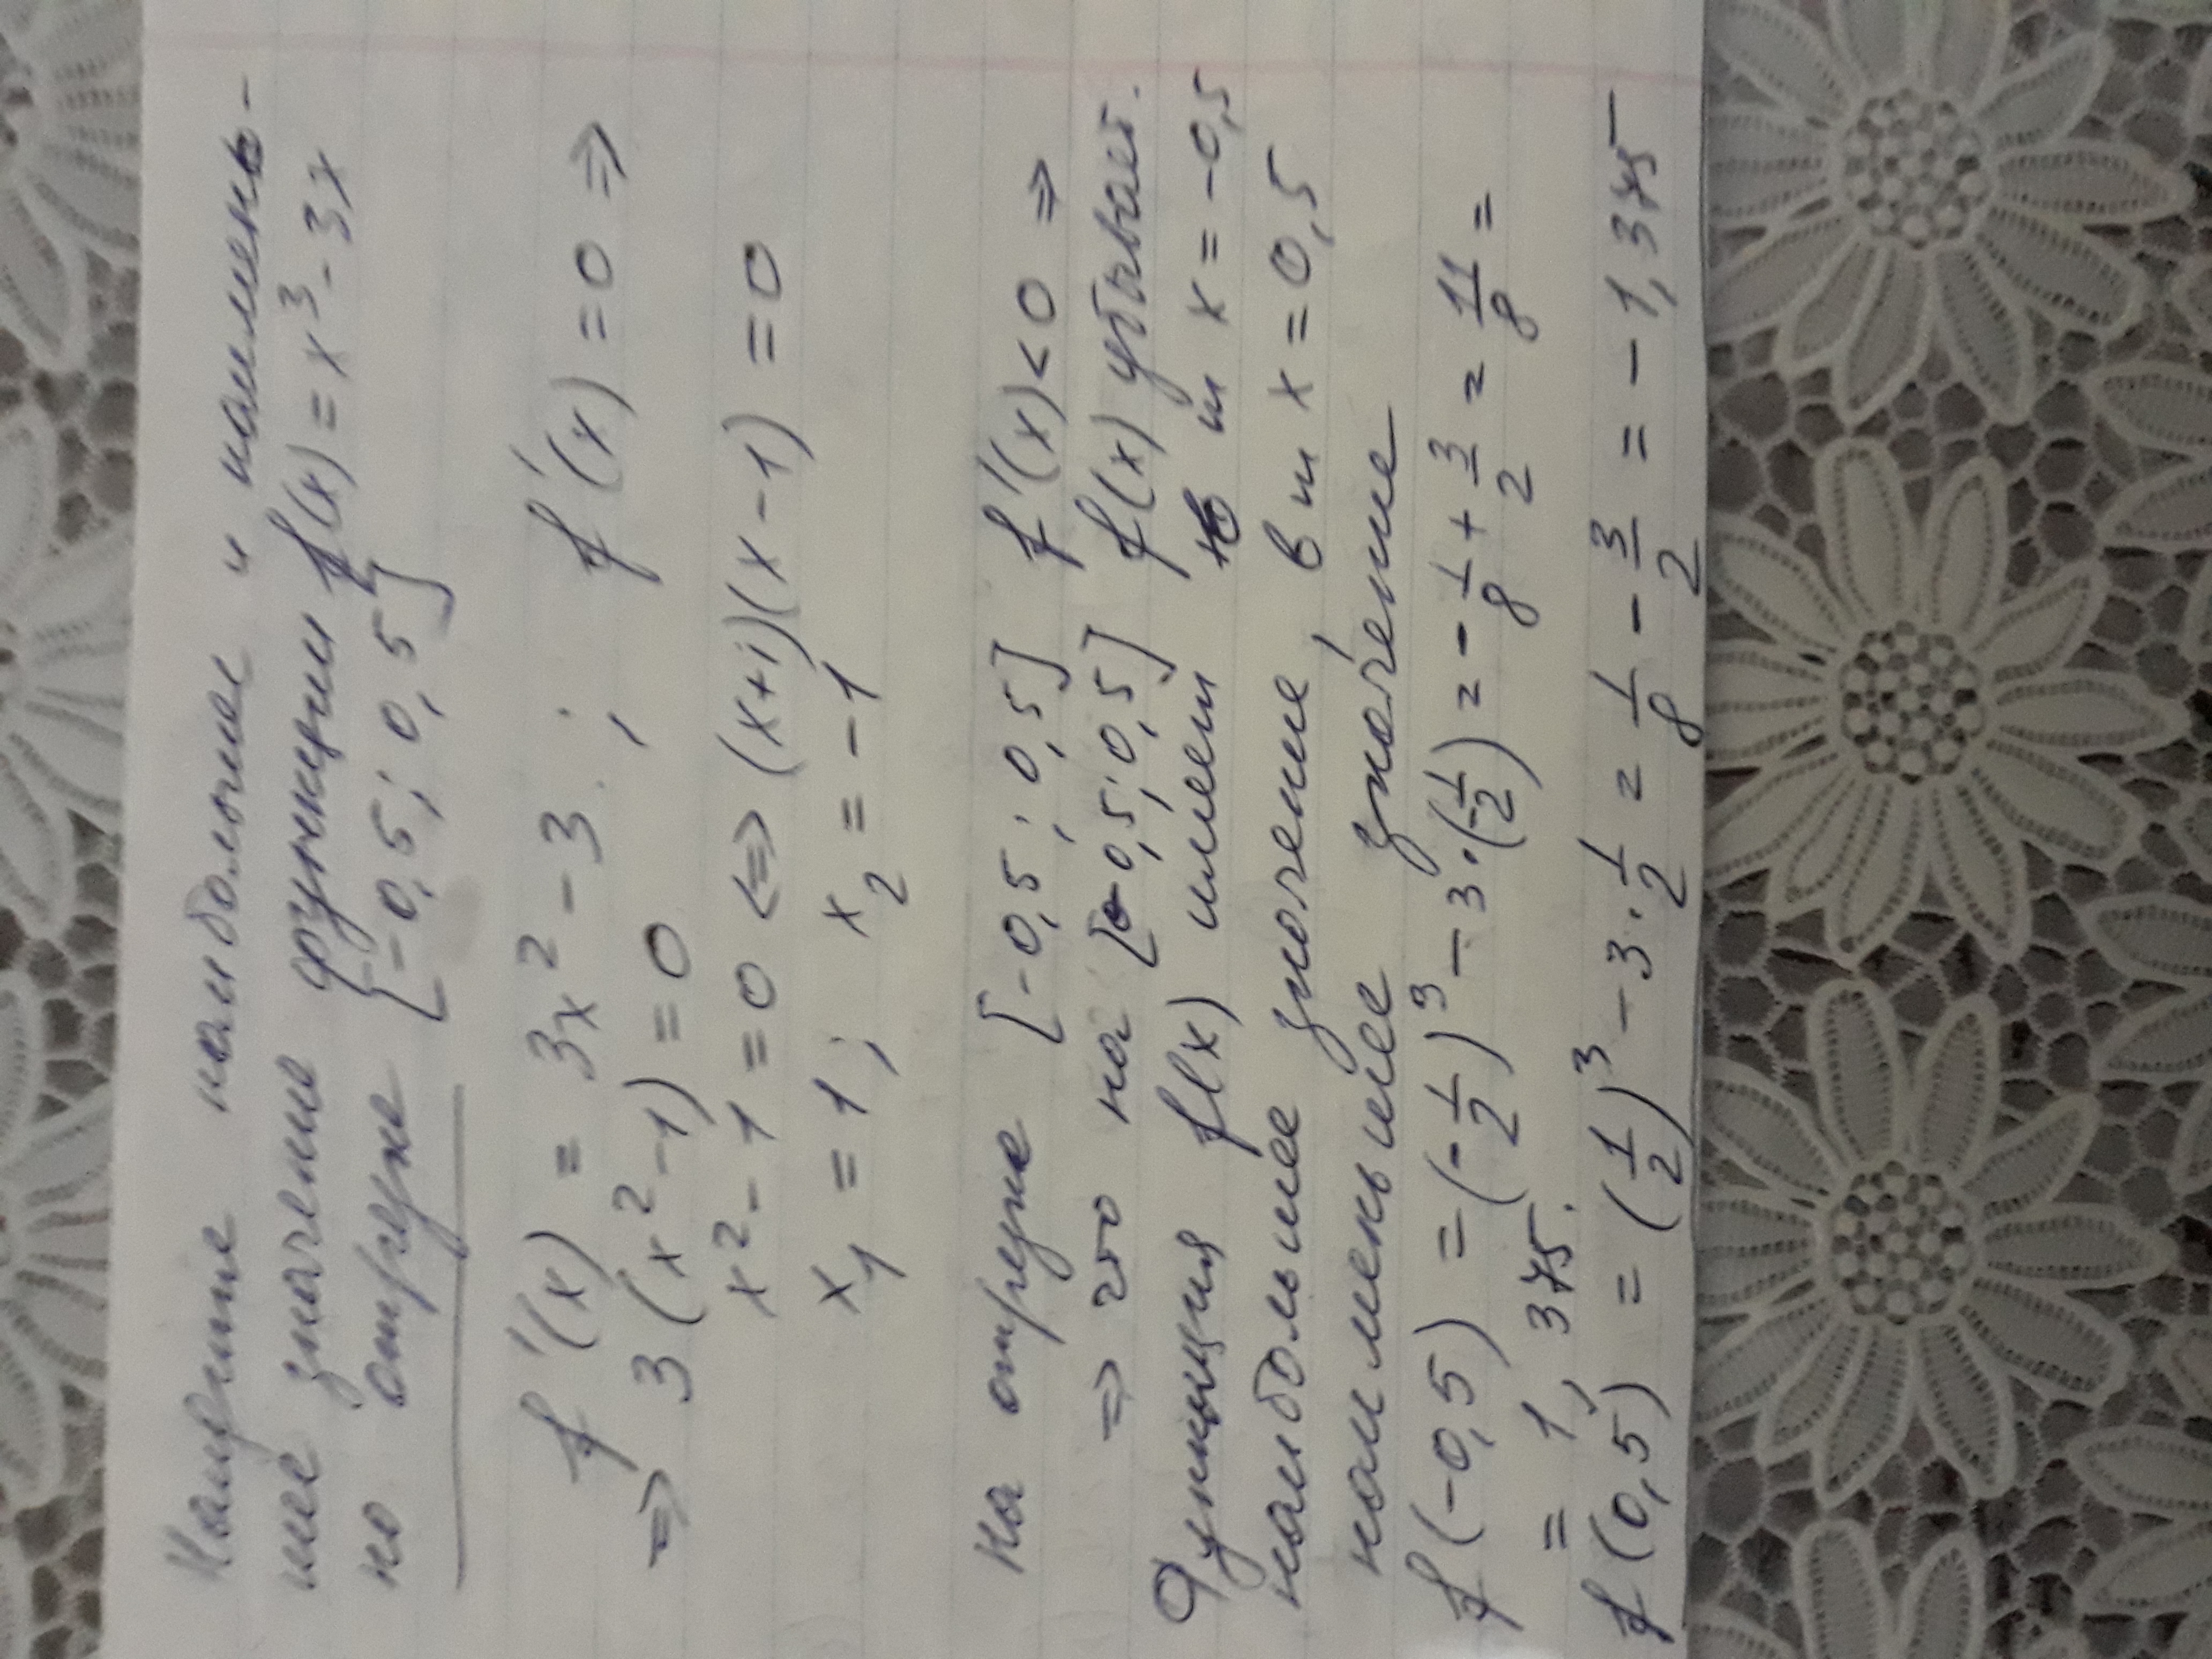 Найдите наибольшее и наимень-
шее значение функции f(x) = x³ - 3x
на отрезке [-0,5; 0,5]
f'(x) = 3x² - 3 ; f'(x) = 0 ⇒
⇒ 3(x² - 1) = 0
x² - 1 = 0 ⇔ (x+1)(x-1) = 0
x₁ = 1; x₂ = -1
На отрезке [-0,5; 0,5] f'(x) < 0 ⇒
⇒ что на [-0,5; 0,5] f(x) убывает.
Функция f(x) имеет в т x = -0,5
наибольшее значение, в т x = 0,5
наименьшее значение
f(-0,5) = (-1/2)³ - 3·(-1/2) = -1/8 + 3/2 = 11/8 =
= 1,375.
f(0,5) = (1/2)³ - 3·1/2 = 1/8 - 3/2 = -1,375